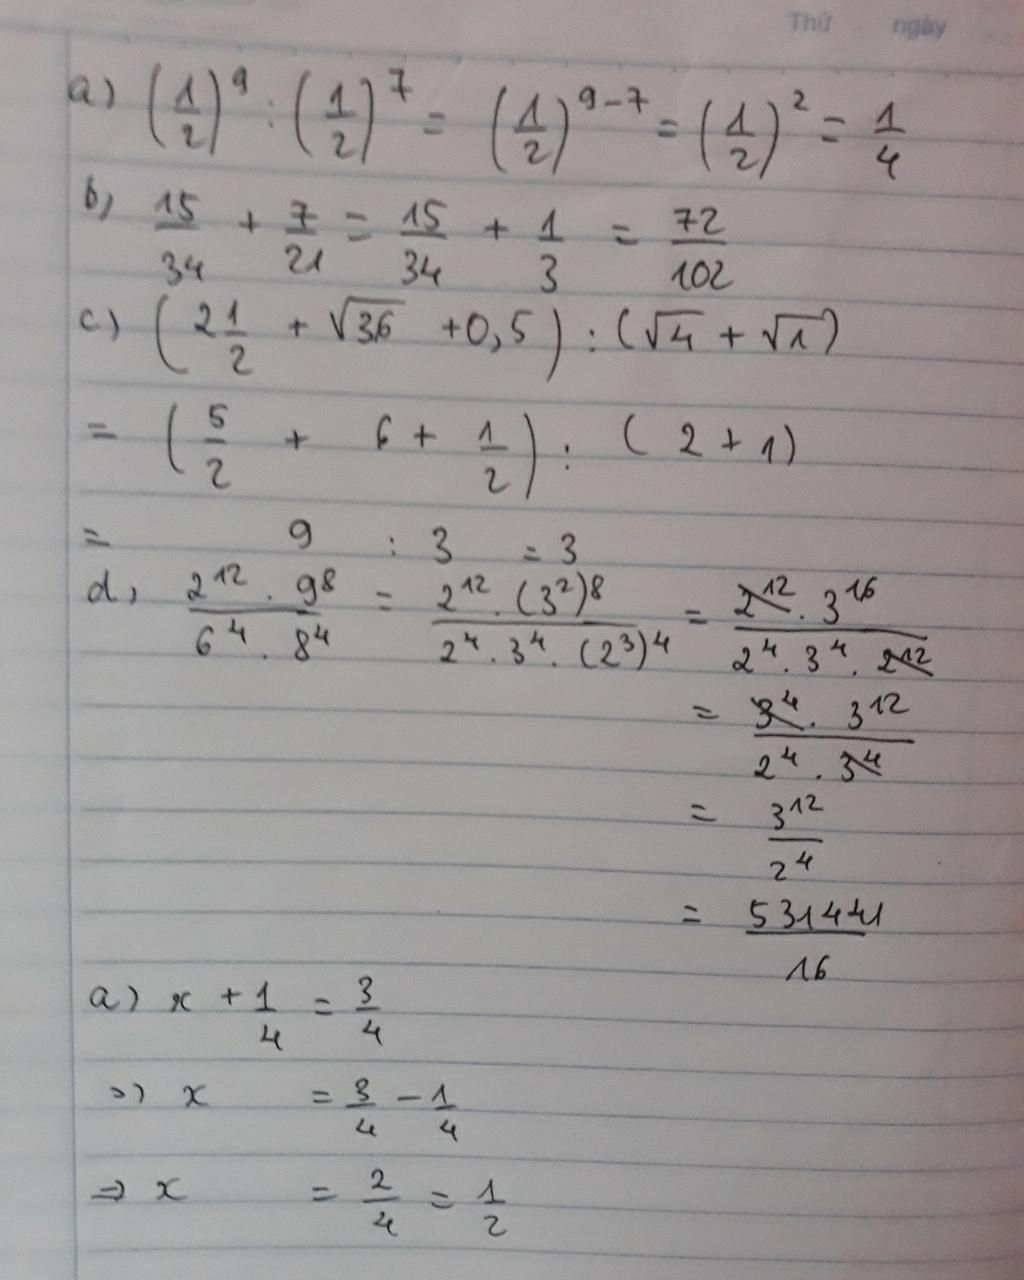 Thứ ngày
a) (1/2)^9 : (1/2)^7 = (1/2)^{9-7} = (1/2)^2 = 1/4
b, 15/34 + 7/21 = 15/34 + 1/3 = 72/102
c) (2 1/2 + √36 + 0,5) : (√4 + √1)
= (5/2 + 6 + 1/2) : (2 + 1)
= 9 : 3 = 3
d, (2^12 . 9^8)/(6^4 . 8^4) = (2^12 . (3^2)^8)/(2^4 . 3^4 . (2^3)^4) = (2^12 . 3^16)/(2^4 . 3^4 . 2^12)
= (3^4 . 3^12)/(2^4 . 3^4)
= 3^12/2^4
= 531441/16
a) x + 1/4 = 3/4
=) x = 3/4 - 1/4
⇒ x = 2/4 = 1/2